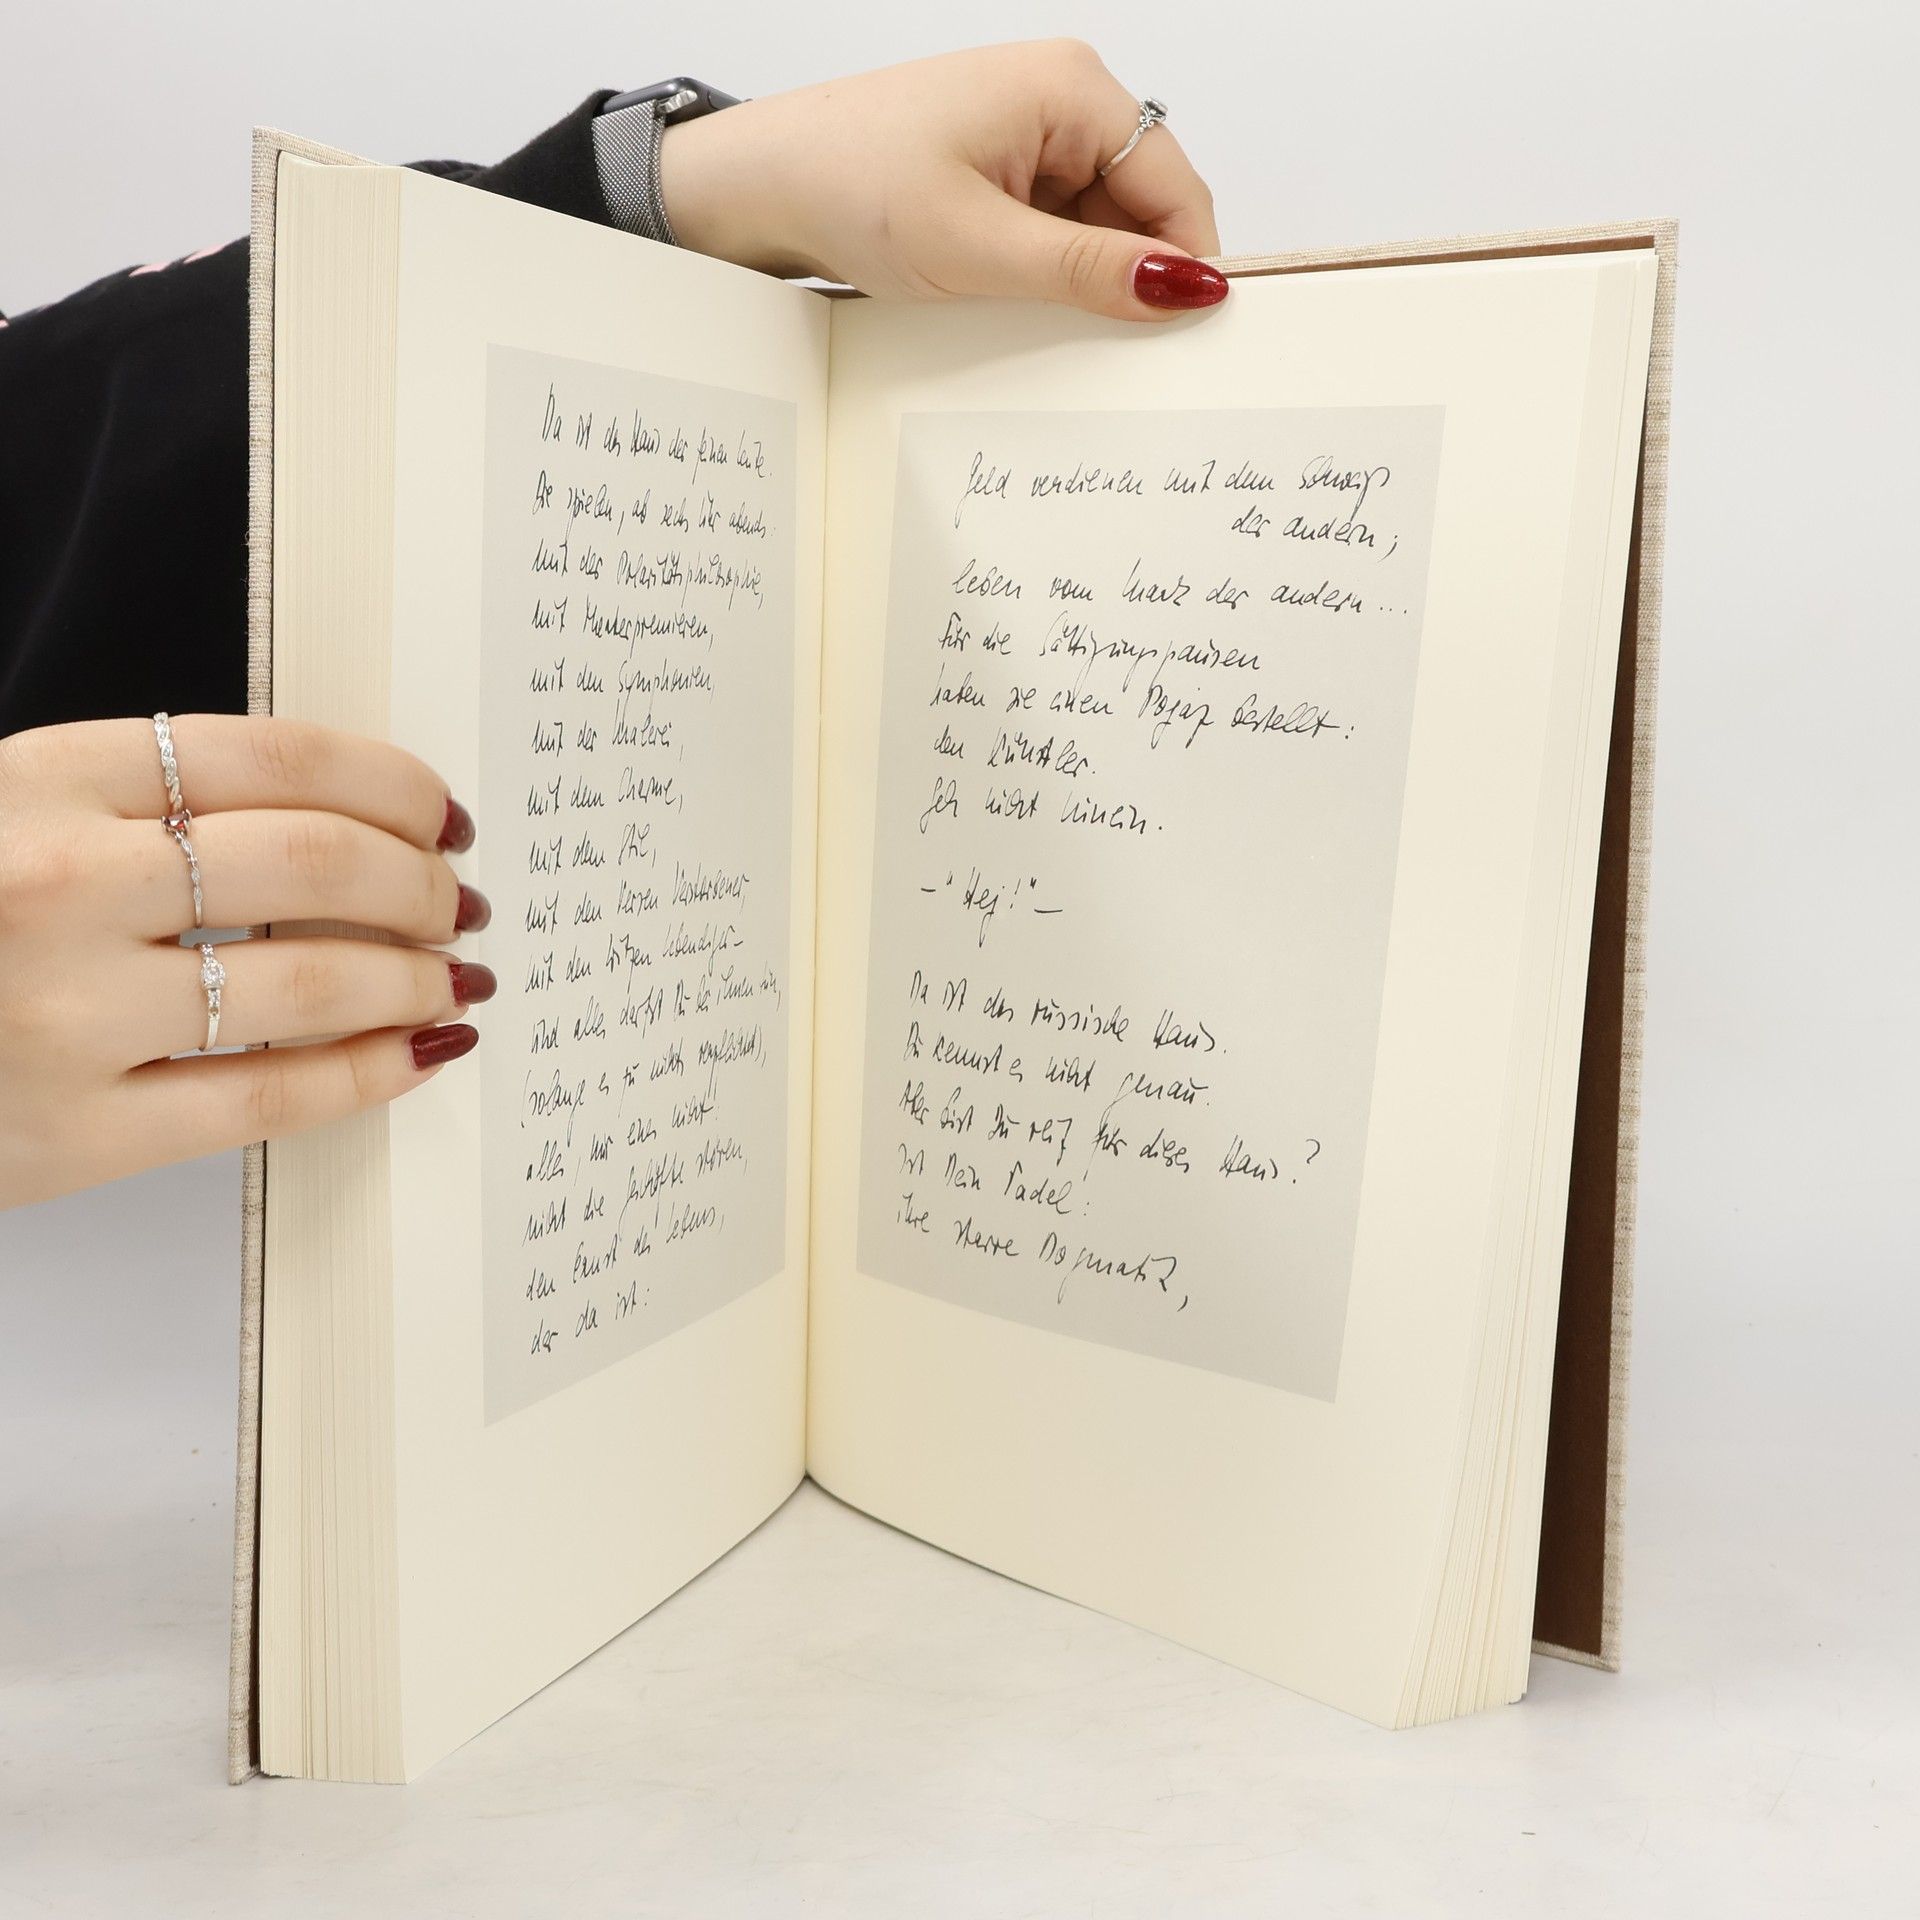 Da ist das Haus der feinen Leute.
Sie spielen, ab sechs Uhr abends:
mit der Polaritätsphilosophie,
mit Theaterpremieren,
mit den Symphonien,
mit der Malerei,
mit dem Charme,
mit dem Stil,
mit den Versen Verstorbener,
mit den Witzen Lebendiger –
und alles darfst Du bei ihnen tun,
(solange es zu nichts verpflichtet),
alles, nur eines nicht:
nicht die Geschäfte stören,
den Ernst des Lebens,
der da ist:
Geld verdienen mit dem Schweiß
der andern;
leben vom Mark der andern...
Für die Sättigungspausen
haben sie einen Pojaz bestellt:
den Künstler.
Geh nicht hinein.
– "Hej!" –
Da ist das russische Haus.
Du kennst es nicht genau.
Aber bist Du reif für dieses Haus?
Ist Dein Tadel:
ihre starre Dogmatik,